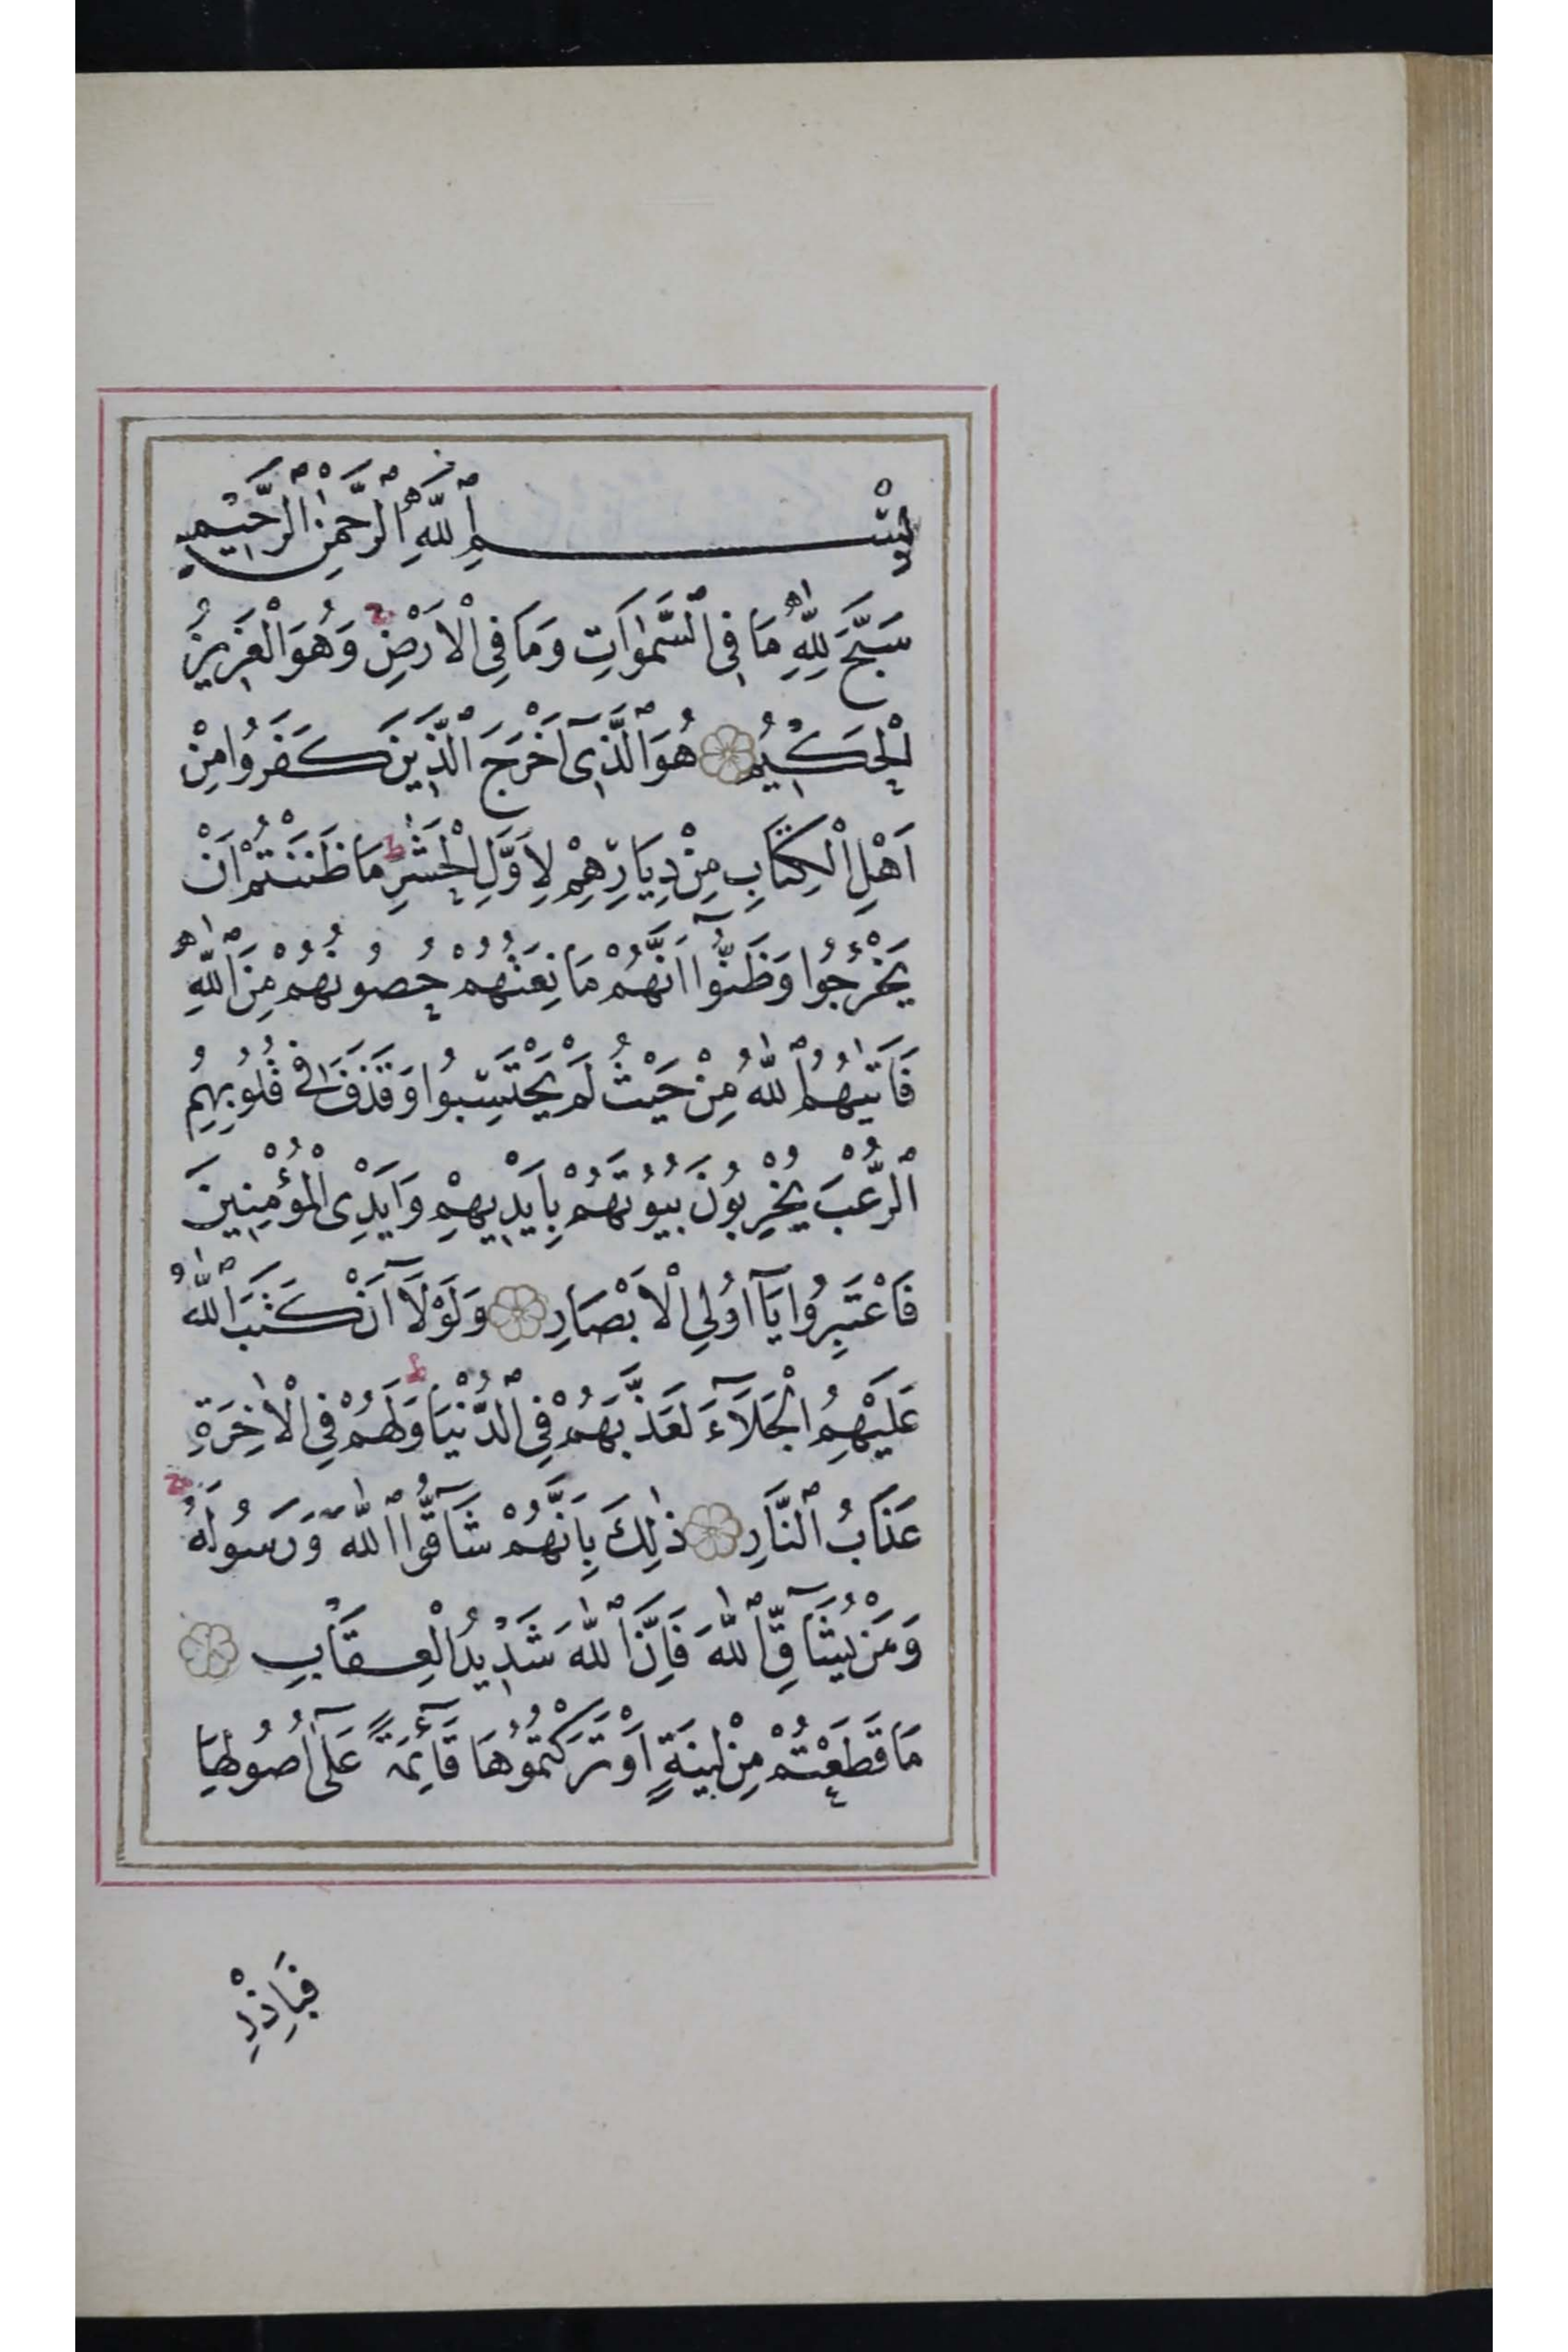 بِسْمِ ٱللّٰهِ ٱلرَّحْمٰنِ ٱلرَّحِيمِ
سَبَّحَ لِلّٰهِ مَا فِى ٱلسَّمٰوَاتِ وَمَا فِى الْاَرْضِۚ وَهُوَ الْعَزِيزُ
الْحَكِيمُ ۝ هُوَ ٱلَّذِىٓ اَخْرَجَ ٱلَّذِينَ كَفَرُوا مِنْ
اَهْلِ الْكِتَابِ مِنْ دِيَارِهِمْ لِاَوَّلِ الْحَشْرِؕ مَا ظَنَنْتُمْ اَنْ
يَخْرُجُوا وَظَنُّٓوا اَنَّهُمْ مَانِعَتُهُمْ حُصُونُهُمْ مِنَ ٱللّٰهِ
فَاَتٰيهُمُ ٱللّٰهُ مِنْ حَيْثُ لَمْ يَحْتَسِبُوا وَقَذَفَ فِى قُلُوبِهِمُ
ٱلرُّعْبَ يُخْرِبُونَ بُيُوتَهُمْ بِاَيْدِيهِمْ وَاَيْدِى الْمُؤْمِنِينَ
فَاعْتَبِرُوا يَٓا اُولِى الْاَبْصَارِ ۝ وَلَوْلَٓا اَنْ كَتَبَ ٱللّٰهُ
عَلَيْهِمُ الْجَلَٓاءَ لَعَذَّبَهُمْ فِى ٱلدُّنْيَاؕ وَلَهُمْ فِى الْاٰخِرَةِ
عَذَابُ ٱلنَّارِ ۝ ذٰلِكَ بِاَنَّهُمْ شَٓاقُّوا ٱللّٰهَ وَرَسُولَهُۚ
وَمَنْ يُشَٓاقِّ ٱللّٰهَ فَاِنَّ ٱللّٰهَ شَدِيدُ الْعِقَابِ ۝
مَا قَطَعْتُمْ مِنْ لِينَةٍ اَوْ تَرَكْتُمُوهَا قَٓائِمَةً عَلٰٓى اُصُولِهَا
فَبِاِذْنِ